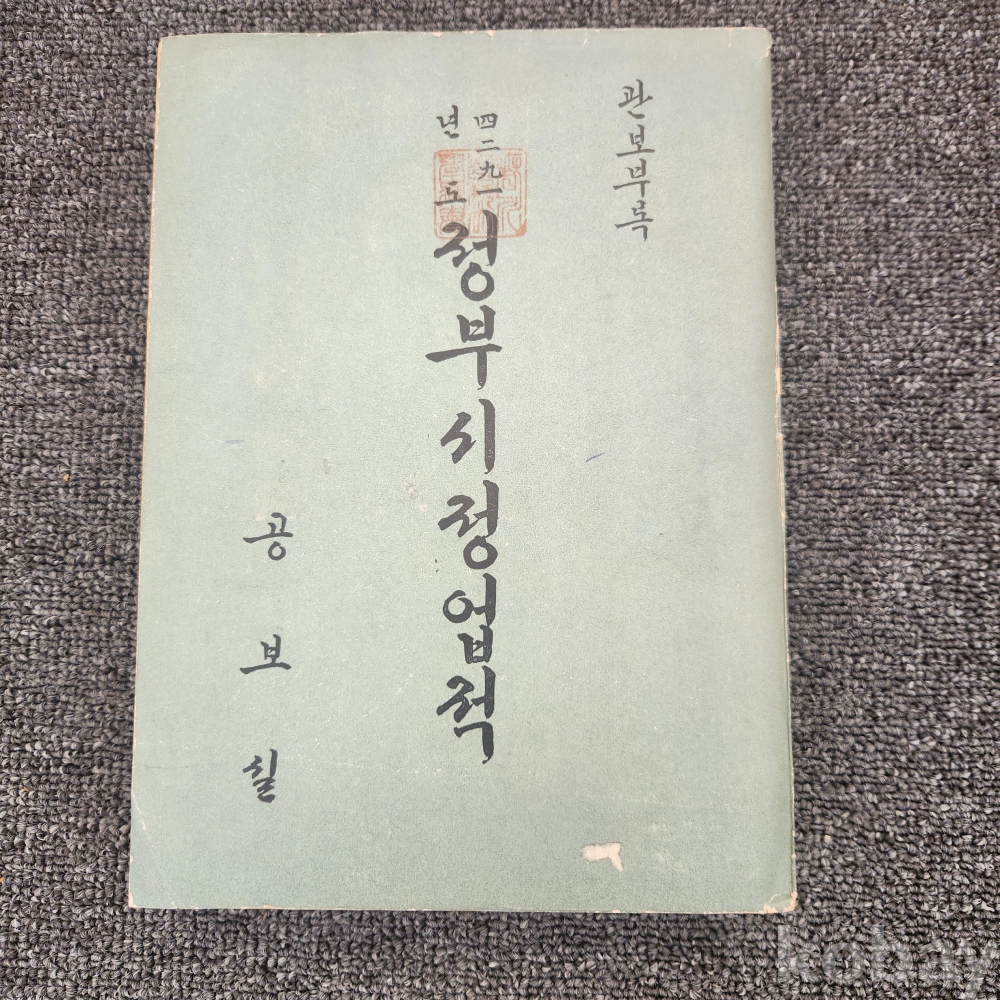 관보부록
四二九一
년도
정부시정업적
공보실
kobay